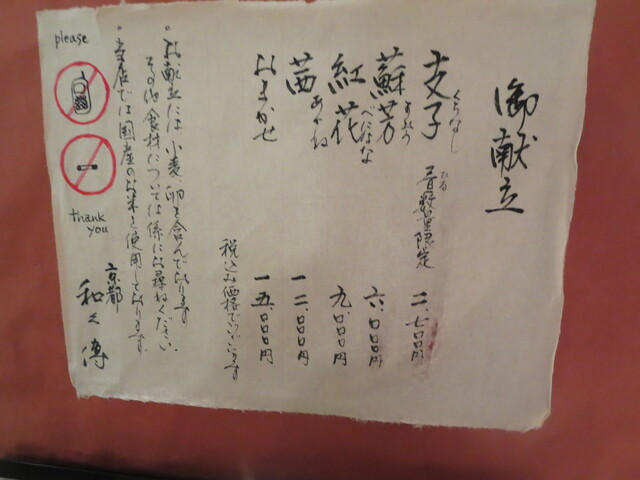 御献立
支子 くちなし 二、七〇〇円
昼 ひる 数量限定
蘇芳 すおう 六、〇〇〇円
紅花 べにばな 九、〇〇〇円
茜 あかね 一二、〇〇〇円
おまかせ 一五、〇〇〇円
税込み価格でございます
・お献立には 小麦 卵を含んでおります
その他食材については係にお尋ねください。
・当店では国産のお米を使用しております。
京都
和久傳
please
thank
you